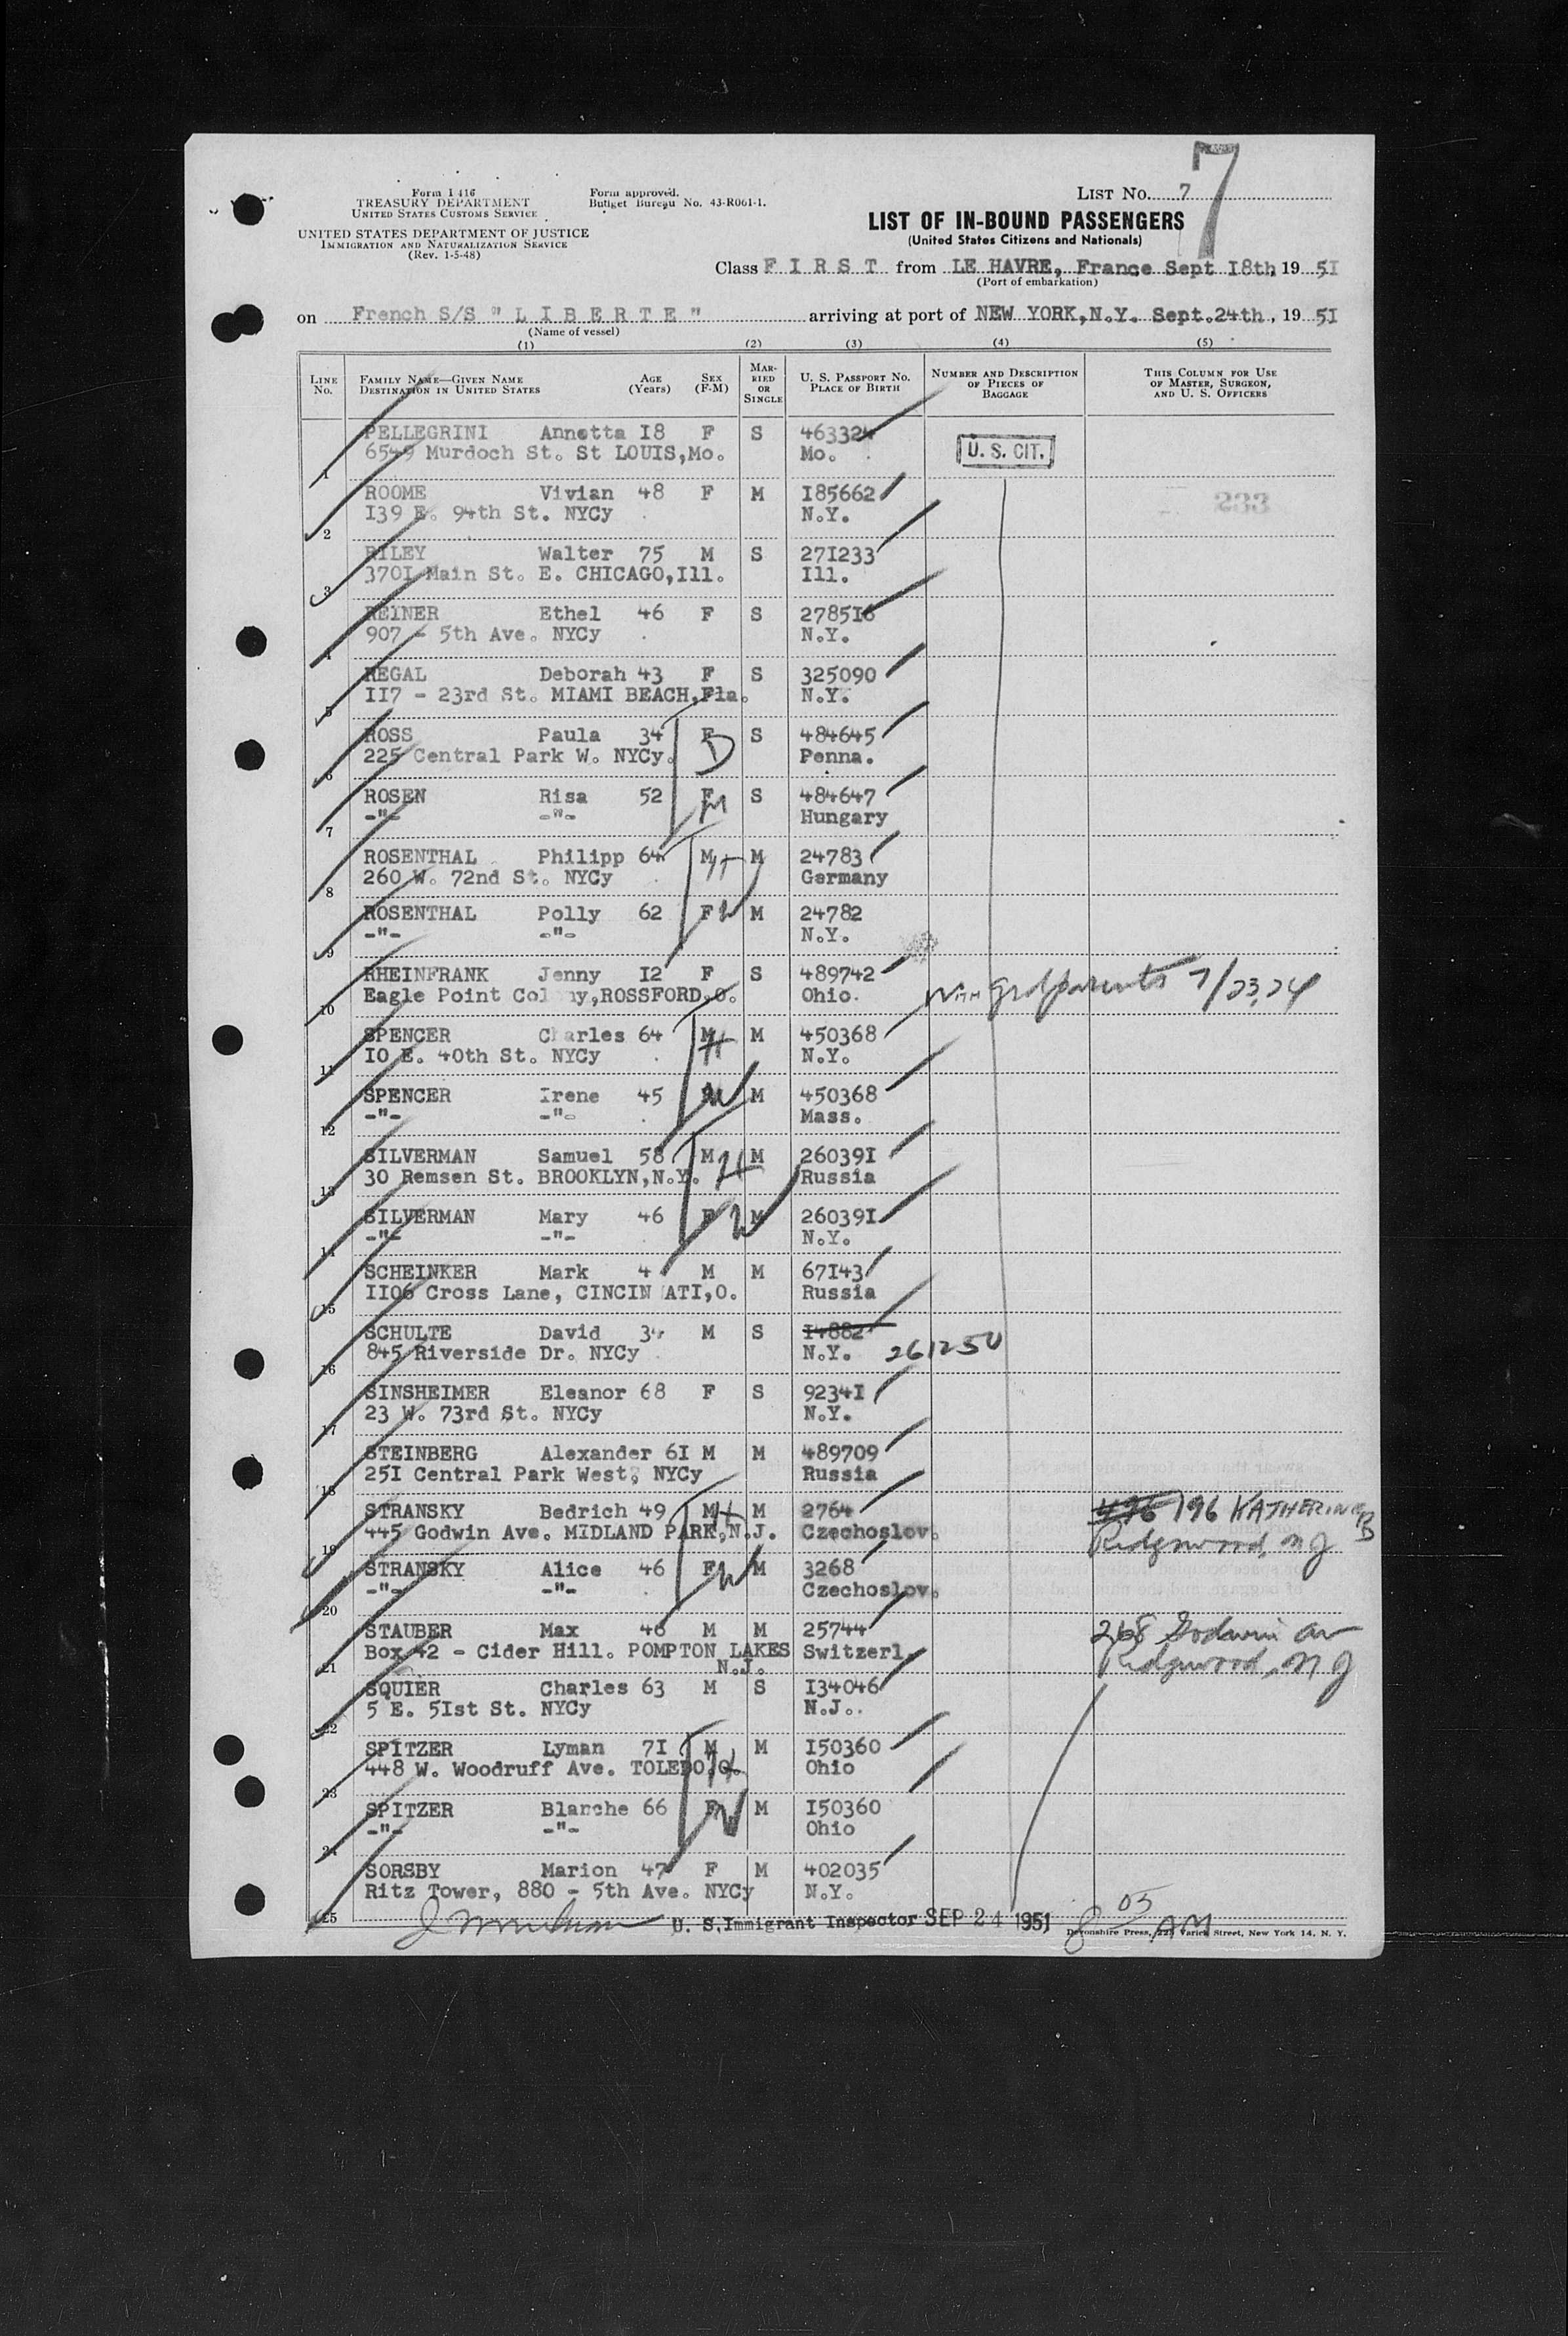 7
Form I 416
TREASURY DEPARTMENT
UNITED STATES CUSTOMS SERVICE
UNITED STATES DEPARTMENT OF JUSTICE
IMMIGRATION AND NATURALIZATION SERVICE
(Rev. 1-5-48)
Form approved.
Budget Bureau No. 43-R061-1.
LIST NO. 7
LIST OF IN-BOUND PASSENGERS
(United States Citizens and Nationals)
Class F I R S T from LE HAVRE, France Sept 18th, 19 51
(Port of embarkation)
on French S/S " L I B E R T E " arriving at port of NEW YORK,N.Y. Sept.24th, 19 51
(Name of vessel)
(1) (2) (3) (4) (5)
LINE No. FAMILY NAME—GIVEN NAME DESTINATION IN UNITED STATES AGE (Years) SEX (F-M) MARRIED OR SINGLE U. S. PASSPORT NO. PLACE OF BIRTH NUMBER AND DESCRIPTION OF PIECES OF BAGGAGE THIS COLUMN FOR USE OF MASTER, SURGEON, AND U. S. OFFICERS
1 PELLEGRINI Annetta 18 F S 463324
6549 Murdoch St. St LOUIS,Mo. Mo. U. S. CIT.
2 ROOME Vivian 48 F M 185662
139 E. 94th St. NYCy N.Y. 233
3 RILEY Walter 75 M S 271233
3701 Main St. E. CHICAGO,Ill. Ill.
4 REINER Ethel 46 F S 278516
907 - 5th Ave. NYCy N.Y.
5 REGAL Deborah 43 F S 325090
117 - 23rd St. MIAMI BEACH,Fla. N.Y.
6 ROSS Paula 34 F D S 484645
225 Central Park W. NYCy. Penna.
7 ROSEN Risa 52 F M S 484647
-"- -"- Hungary
8 ROSENTHAL Philipp 64 M H M 24783
260 W. 72nd St. NYCy Germany
9 ROSENTHAL Polly 62 F W M 24782
-"- -"- N.Y.
10 RHEINFRANK Jenny 12 F S 489742
Eagle Point Colony,ROSSFORD.O. Ohio. With grdparents 7/23,24
11 SPENCER Charles 64 M H M 450368
10 E. 40th St. NYCy N.Y.
12 SPENCER Irene 45 W M 450368
-"- -"- Mass.
13 SILVERMAN Samuel 58 M H M 260391
30 Remsen St. BROOKLYN,N.Y. Russia
14 SILVERMAN Mary 46 F W M 260391
-"- -"- N.Y.
15 SCHEINKER Mark 4 M M 67143
1106 Cross Lane, CINCIN ATI,O. Russia
16 SCHULTE David 34 M S 14882
845 Riverside Dr. NYCy N.Y. 261250
17 SINSHEIMER Eleanor 68 F S 92341
23 W. 73rd St. NYCy N.Y.
18 STEINBERG Alexander 61 M M 489709
251 Central Park West, NYCy Russia
19 STRANSKY Bedrich 49 M H M 2764 196 KATHERINE
445 Godwin Ave. MIDLAND PARK,N.J. Czechoslov. Ridgewood, NJ
20 STRANSKY Alice 46 F W M 3268
-"- -"- Czechoslov.
21 STAUBER Max 46 M M 25744 268 Godwin av
Box 42 - Cider Hill. POMPTON LAKES Switzerl. Ridgewood, NJ
N.J.
22 SQUIER Charles 63 M S 134046
5 E. 51st St. NYCy N.J.
23 SPITZER Lyman 71 M H M 150360
448 W. Woodruff Ave. TOLEDO,O. Ohio
24 SPITZER Blanche 66 F W M 150360
-"- -"- Ohio
25 SORSBY Marion 47 F M 402035
Ritz Tower, 880 - 5th Ave. NYCy N.Y.
U. S. Immigrant Inspector SEP 24 1951 8 05 AM
Devonshire Press, 225 Varick Street, New York 14, N. Y.